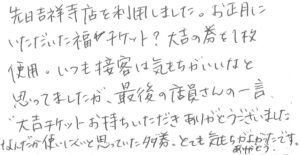 先日吉祥寺店を利用しました。お正月に
いただいた福チケット?大吉の券を1枚
使用。いつも接客は気もちがいいなと
思ってましたが、最後の店員さんの一言、
"大吉チケットお持ちいただきありがとうございました
なんだか使いにくいと思っていた券。とても気もちが上がったです。
ありがとう